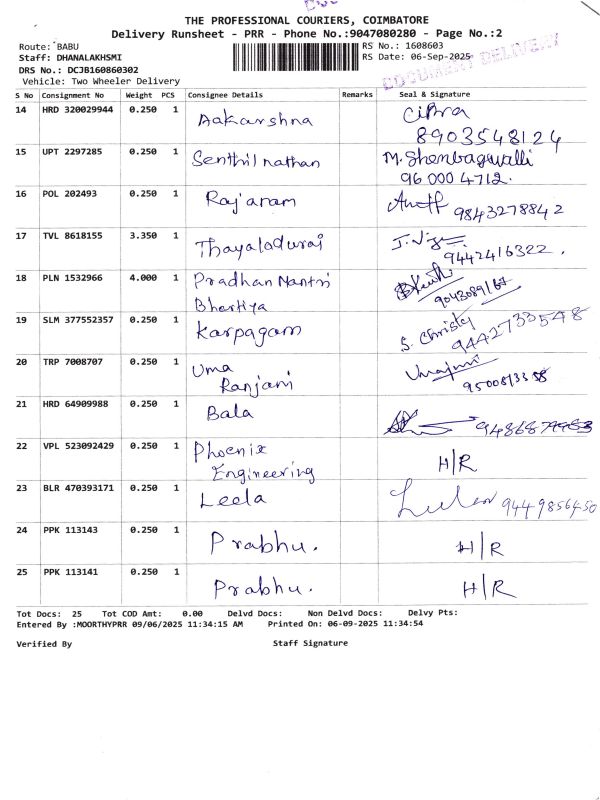 THE PROFESSIONAL COURIERS, COIMBATORE
Delivery Runsheet - PRR - Phone No.:9047080280 - Page No.:2
Route: BABU
Staff: DHANALAKHSMI
DRS No.: DCJB160860302
Vehicle: Two Wheeler Delivery
RS No.: 1608603
RS Date: 06-Sep-2025
DOCUMENT DELIVERY
S No Consignment No Weight PCS Consignee Details Remarks Seal & Signature
14 HRD 320029944 0.250 1 Aakarshna
8903548124
15 UPT 2297285 0.250 1 Senthil nathan M. Shenbagavalli
96 000 4712.
16 POL 202493 0.250 1 Rajaram
9843278842
17 TVL 8618155 3.350 1 Thayaladurai
9442416322.
18 PLN 1532966 4.000 1 Pradhan Mantri
Bhartiya
9043089167
19 SLM 377552357 0.250 1 Karpagam S. Christy
9442733548
20 TRP 7008707 0.250 1 Uma
Ranjani
21 HRD 64909988 0.250 1 Bala
22 VPL 523092429 0.250 1 Phoenix
Engineering H/R
23 BLR 470393171 0.250 1 Leela
9449856450
24 PPK 113143 0.250 1 Prabhu. H/R
25 PPK 113141 0.250 1 Prabhu. H/R
Tot Docs: 25 Tot COD Amt: 0.00 Delvd Docs: Non Delvd Docs: Delvy Pts:
Entered By :MOORTHYPRR 09/06/2025 11:34:15 AM Printed On: 06-09-2025 11:34:54
Verified By Staff Signature